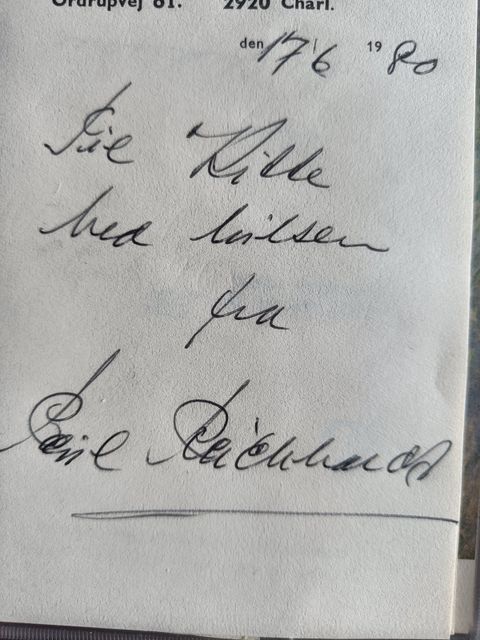 Ordrupvej 61. 2920 Charl.
den 17/6 1980
Til Kitte
med hilsen
fra
Poul Reichhardt